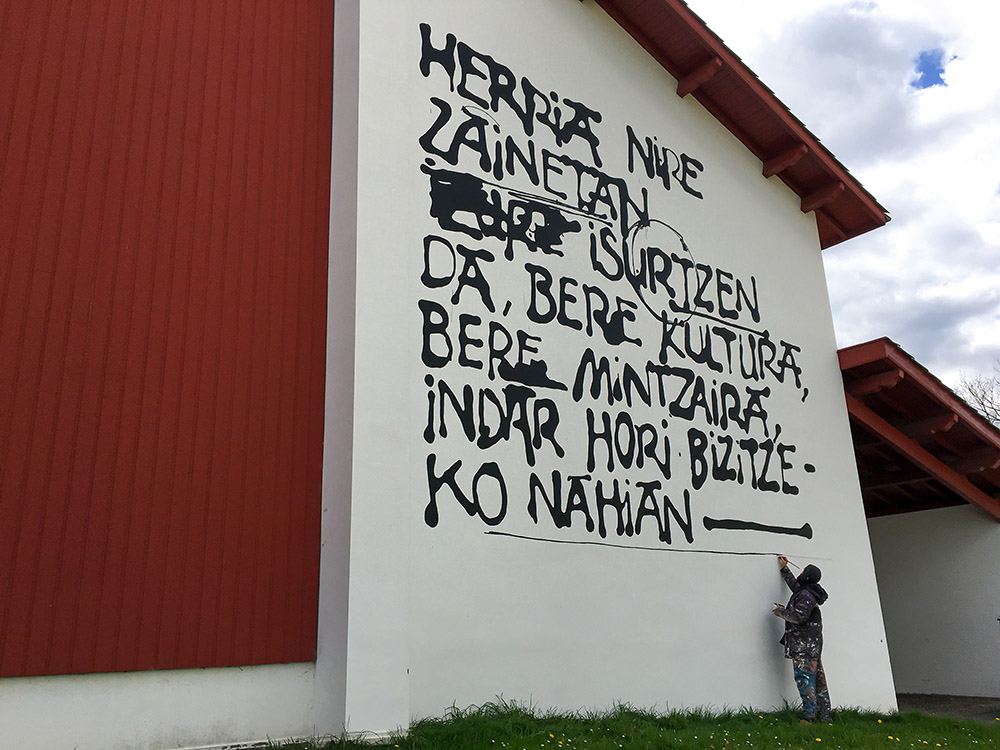 HERRiA NiRE
ZAiNETAN
iSURTZEN
DA, BERE KULTURA,
BERE MiNTZAiRA,
iNDAR HORi BIZITZE-
KO NAHiAN